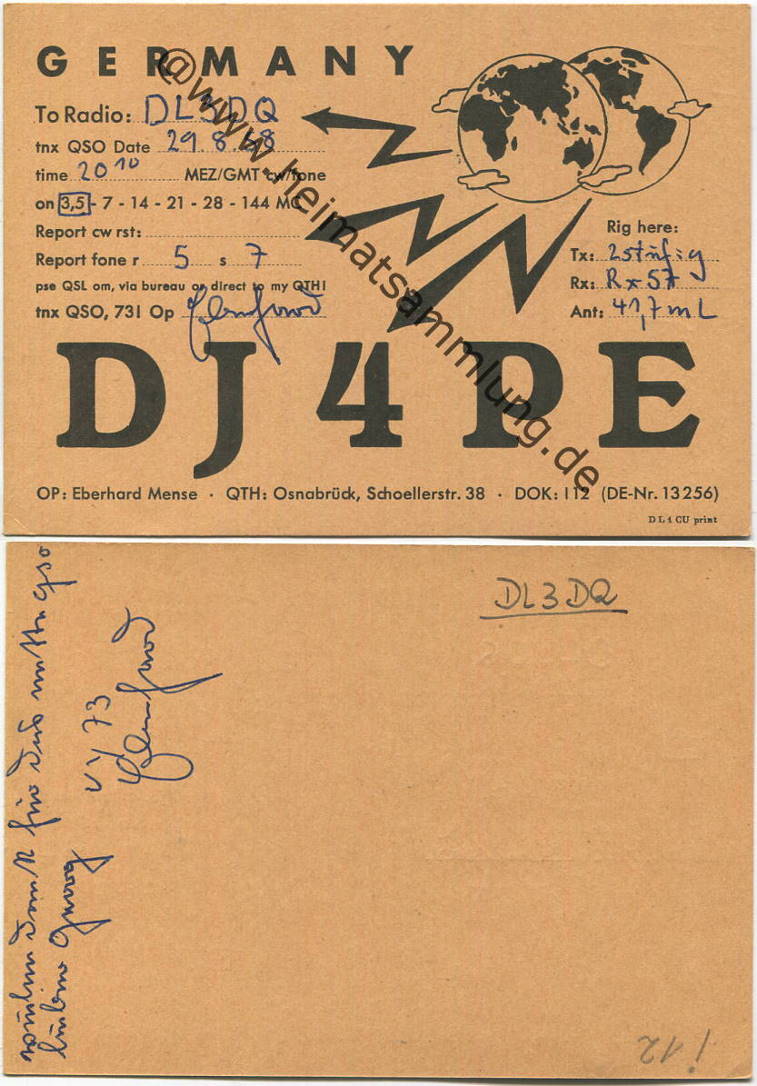 GERMANY
To Radio: DL3DQ
tnx QSO Date 29.8.58
time 20 10 MEZ/GMT cw/fone
on 3,5 - 7 - 14 - 21 - 28 - 144 MC
Report cw rst:
Report fone r 5 s 7
pse QSL om, via bureau or direct to my QTH!
tnx QSO, 73! Op Eberhard
Rig here:
Tx: 2stufig
Rx: Rx 57
Ant: 41,7 m L
DJ4PE
OP: Eberhard Mense · QTH: Osnabrück, Schoellerstr. 38 · DOK: I 12 (DE-Nr. 13256)
DL1CU print
@www.heimatsammlung.de
DL3DQ
vielen Dank für das nette qso
lieber Georg
vy 73
Eberhard
i 12